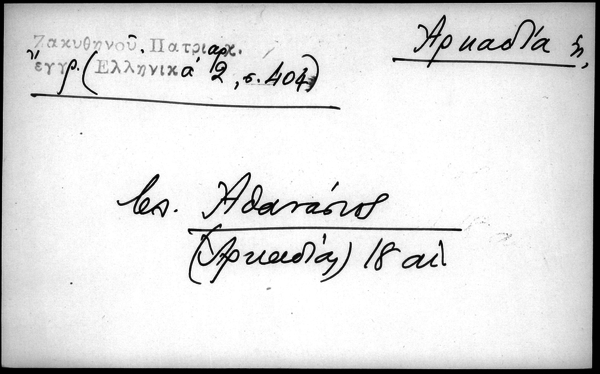 Ζακυθηνοῦ, Πατριαρχ.
ἔγγρ. (Ἑλληνικά 2, σ. 404)
Ἀρκαδία ἡ,
ἐπ. Ἀθανάσιος
(Ἀρκαδίας) 18 αἰ.